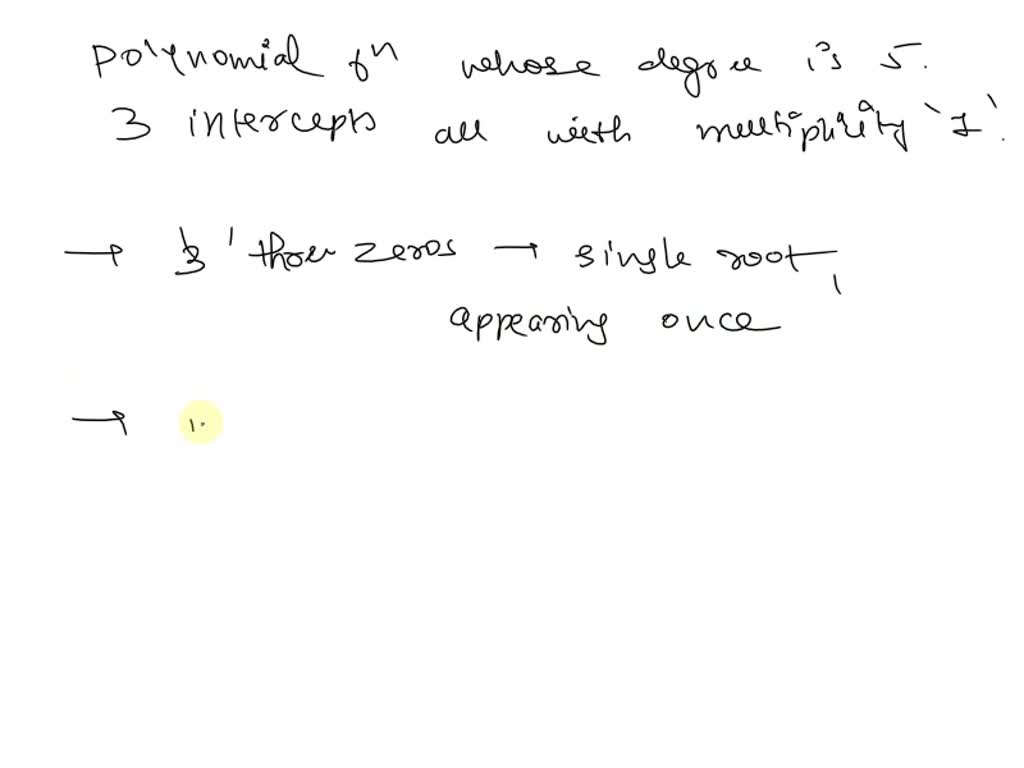 polynomial fn whose degree is 5.
3 intercepts all with multiplicity '1'.
→ 3 three zeros → single root,
appearing once
→ 1.